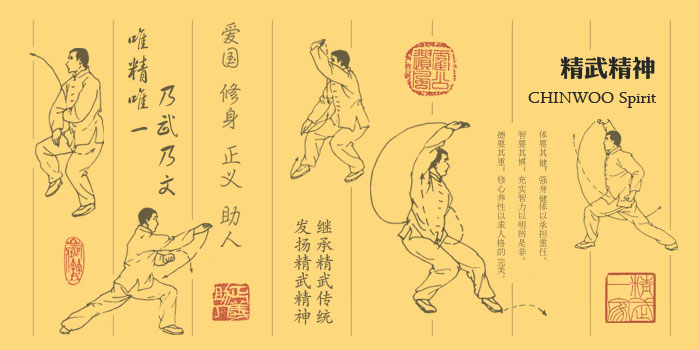 精武精神
CHINWOO Spirit
体要其健，强身健体以承担重任。
智要其博，充实智力以明辨是非。
德要其重，修心养性以求人格的完美。
继承精武传统
发扬精武精神
爱国 修身 正义 助人
乃武乃文
唯精唯一
精武
一家